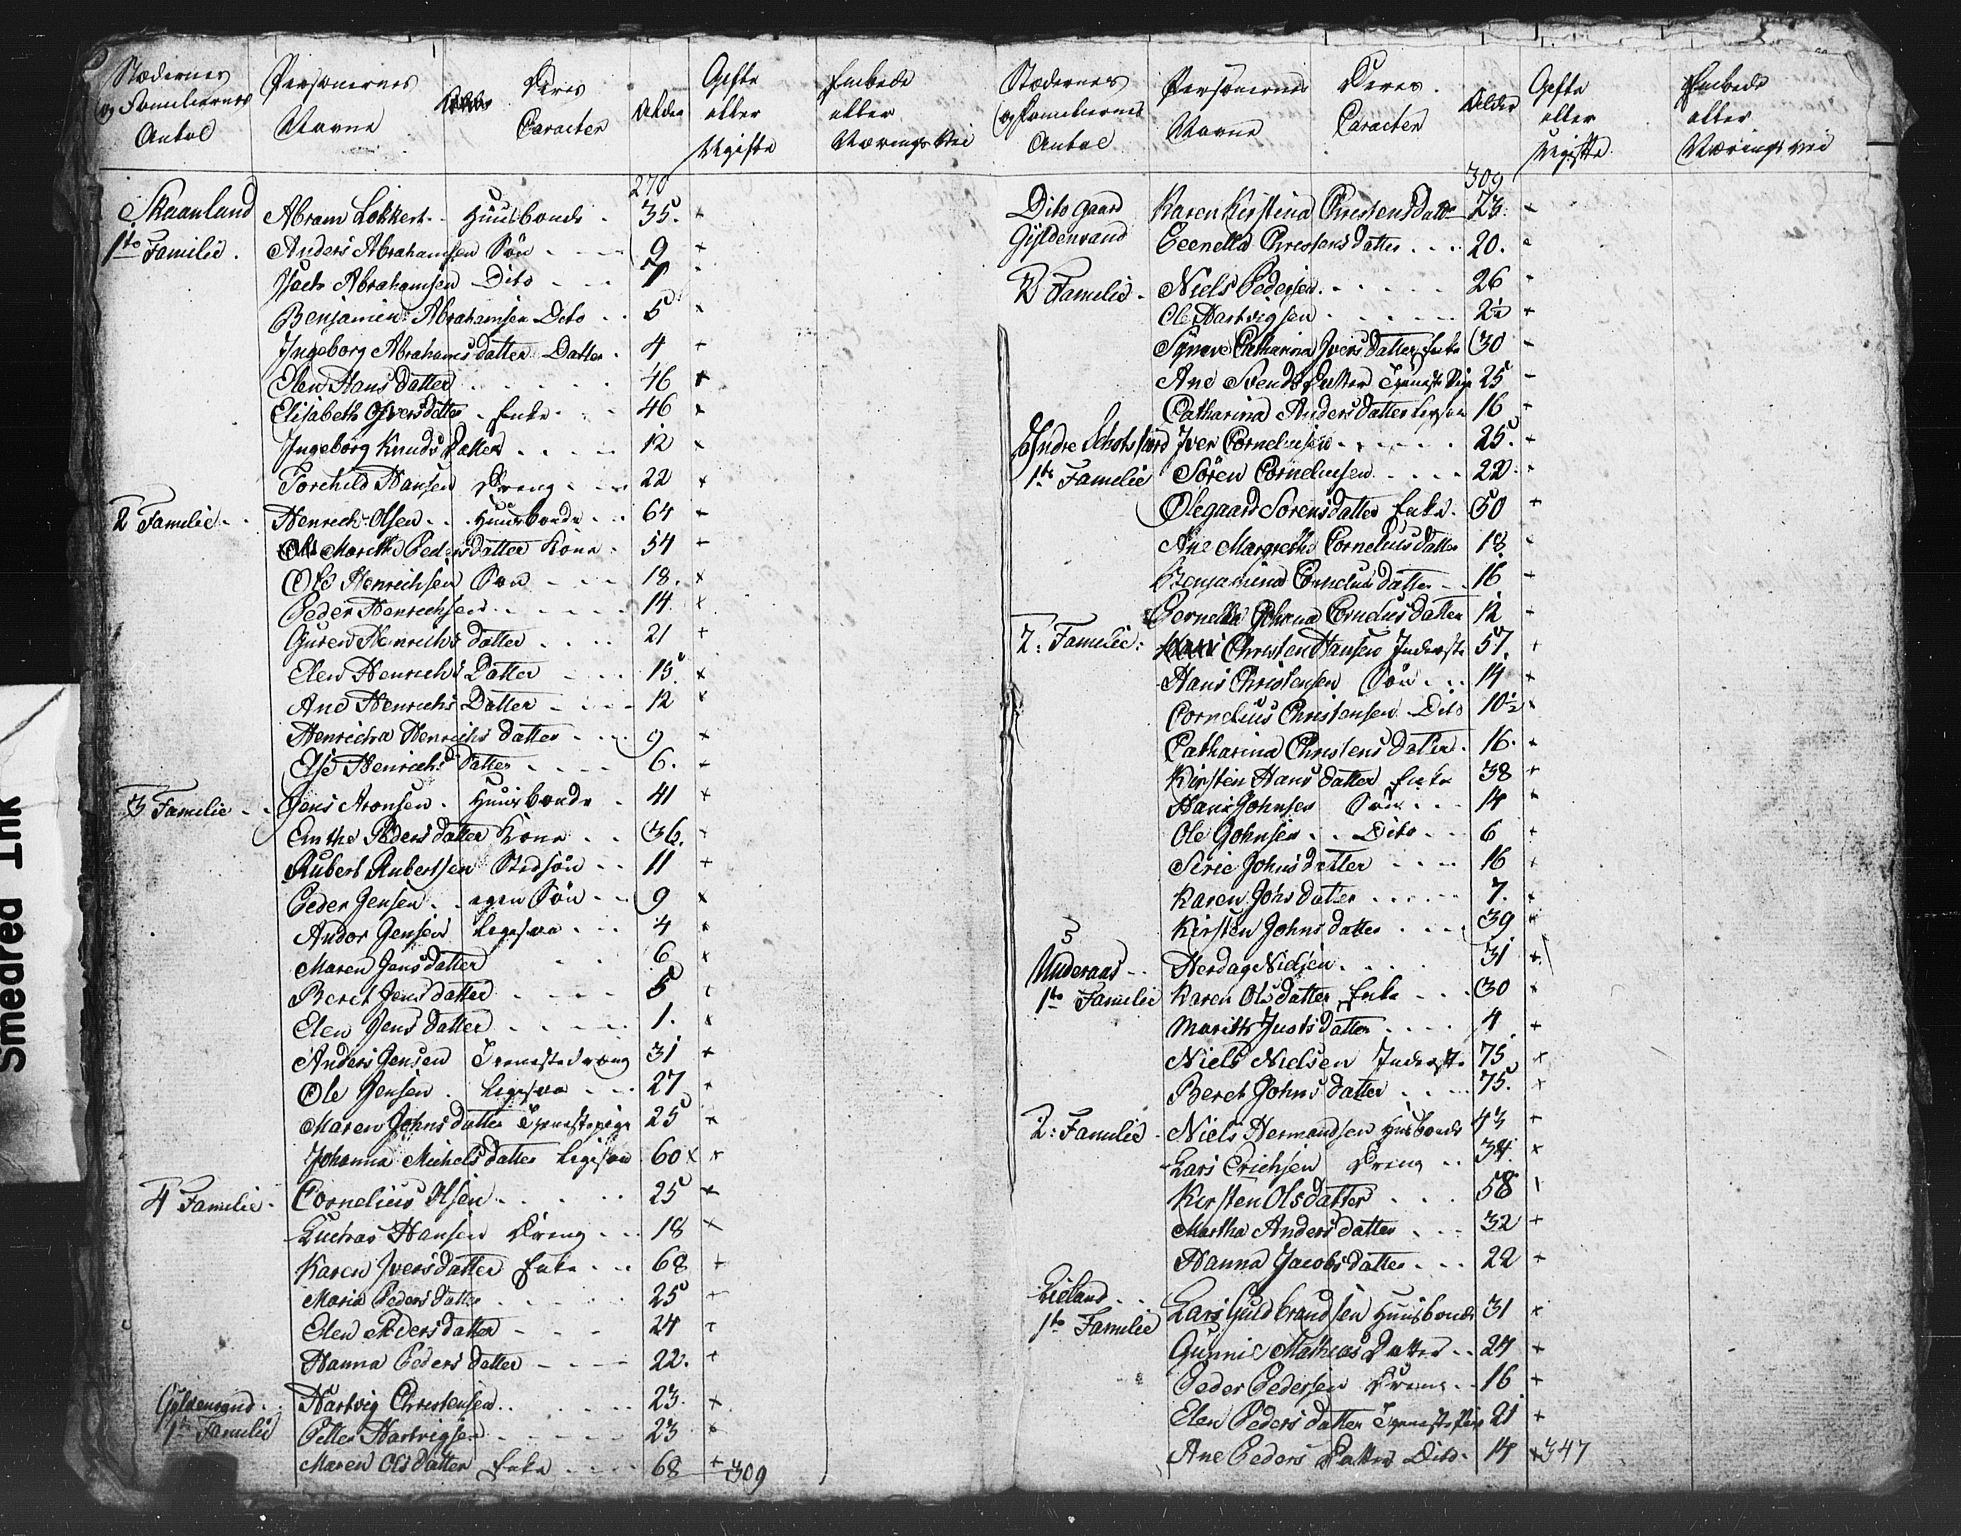 Stædernes og Familiernes Antal | Personernes Navne | Deres Caracter | Alder | Gifte eller Ugifte | Embede eller Nærings Vei
270
Skaanland Abram Lokkert Huusbonde 35. +
1te Familie. Anders Abrahamsen Søn 9 +
Abrahamsen Dito 7
Benjamin Abrahamsen Dito 5 +
Ingeborg Abrahams datter Datter 4 +
Elen Hans datter 46 +
Elisabeth Iversdatter Enke 46 +
Ingeborg Knuds Datter 12 +
Torchild Hansen Dreng 22 +
2 Familie Henrich Olsen Huusbonde 64 +
Marithe Peders datter Kone 54
Ole Henrichsen Søn 18. +
Peder Henrichsen 14 +
Guren Henrichs datter 21 +
Elen Henrichs Datter 15 +
Ane Henrichs Datter 12 +
Henricha Henrichs datter 9 +
Else Henrichs datter 6. +
3 Familie Jens Aronsen Huusbonde 41 +
Peders datter Kone 36. +
Rubert Rubertsen Stedsøn 11 +
Peder Jensen egen Søn 9 +
Andor Jensen Ligesaa 4 +
Maren Jens datter 6 +
Beret Jens datter 5
Elen Jens datter 1. +
Anders Jensen Tienestedræng 31 +
Ole Jensen Ligesaa 27 +
Maren Johns datter Tienestepige 25 +
Johanna Michels datter Ligesaa 60 x +
4 Familie Cornelius Olsen 25 +
Hansen Dreng 18 +
Karen Ivers datter Enke 68 +
Maria Peders datter 25 +
Elen Peders datter 24 +
Hanna Peders datter 22. +
Gyldensand Hartvig Christensen 23. +
1te Familie Petter Hartvigsen 23 +
Maren Ols datter Enke 68 +
309
Stædernes og Familiernes Antal | Personernes Navne | Deres Caracter | Alder | Gifte eller Ugifte | Embede eller Nærings vei
309
Dito gaard Karen Kirstina Christens Datter 23.
Gyldensand Christens datter 20.
2 Familie Niels Pedersen 26
Ole Hartvigsen
Catharina Ivers datter Enke 30
Ane Svends datter Tieneste Pige 25
Catharina Anders datter Ligesaa 16
Indre Iver Cornelussen 25.
1te Familie Søren Cornelussen 22.
Olegaard Sorens datter Enke 50 +
Ane Margrethe Cornelius datter 18
Benjamina Cornelius datter 16
Pernella Johana Cornelius datter 12
2: Familie: Christen Hansen Inderste 57. +
Hans Christensen Søn 14 +
Cornelius Christensen Dito 10½ +
Catharina Christens datter 16. +
Kirsten Hans datter Enke 38 +
Hans Johnsen Søn 14
Ole Johnsen Dito 6 +
Serie Johns datter 16 +
Karen Johs datter 7. +
Kirsten Johns datter 39 +
Herdag Nielsen 31 +
1te Familie Karen Ols datter Enke 30 +
Marith Justs datter 4 +
Niels Nielsen Inderste 75 +
Beret Johns datter 75. +
2: Familie Niels Hermandsen Husbonde 43 +
Lars Erichsen Dreng 34. +
Kirsten Olsdatter 58
Martha Anders datter 32 +
Hanna Jacobs datter 22 +
Lieland
1te Familie Lars Guldbrandsen Huusbonde 31 +
Gunnie Mathias Datter 24 +
Peder Pedersen Dreng 16 +
Elen Peders datter Tieneste Pige 21 +
Ane Peders Datter Dito 14 +
347
Smedred Ink